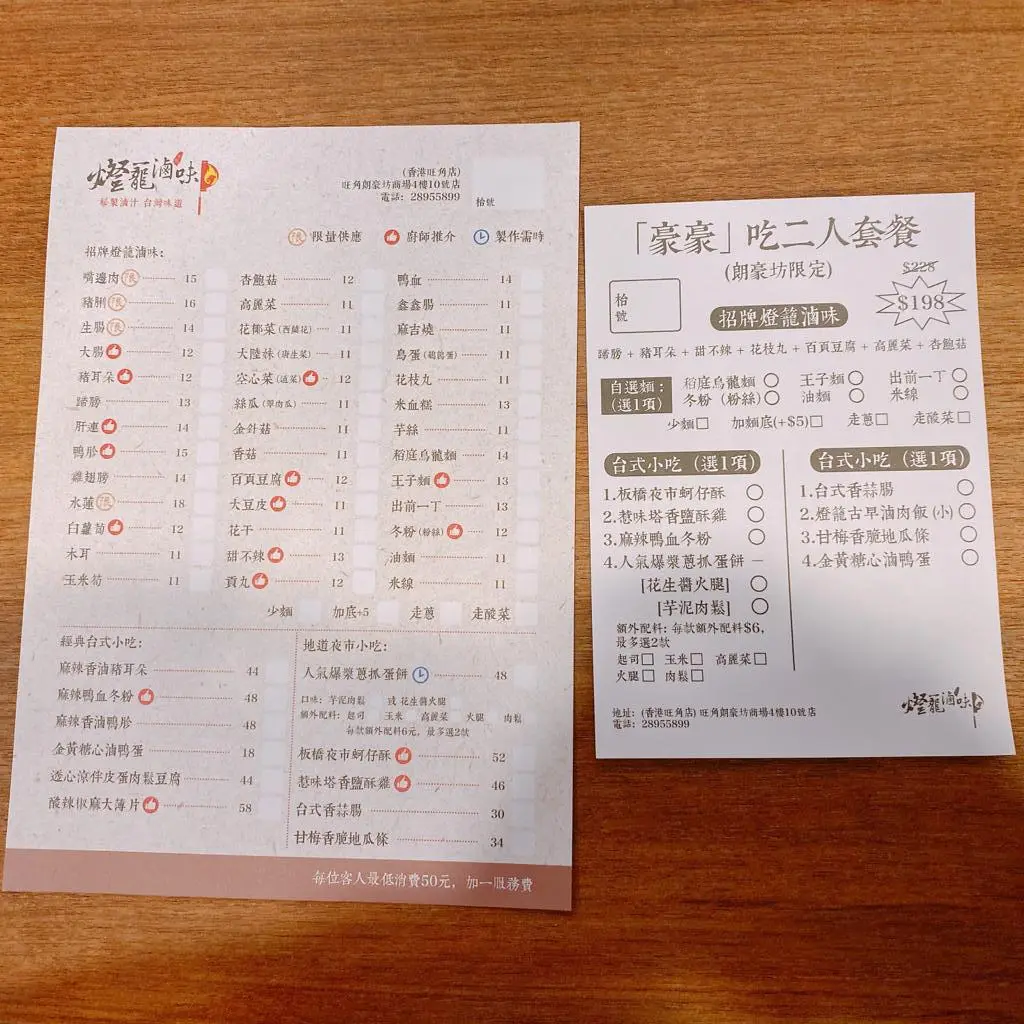 燈籠滷味
秘製滷汁 台灣味道
(香港旺角店)
旺角朗豪坊商場4樓10號店
電話: 28955899
枱號
限 限量供應 廚師推介 製作需時
招牌燈龍滷味:
嘴邊肉 限 15
豬脷 限 16
生腸 限 14
大腸 12
豬耳朵 12
蹄膀 13
肝連 14
鴨胗 15
雞翅膀 14
水蓮 限 18
白蘿蔔 12
木耳 11
玉米筍 11
杏鮑菇 12
高麗菜 11
花椰菜 (西蘭花) 11
大陸妹 (唐生菜) 11
空心菜 (通菜) 12
絲瓜 (翠肉瓜) 11
金針菇 11
香菇 11
百頁豆腐 12
大豆皮 11
花干 11
甜不辣 13
貢丸 12
鴨血 14
鑫鑫腸 11
麻吉燒 11
鳥蛋 (鵪鶉蛋) 11
花枝丸 11
米血糕 13
芋絲 11
稻庭烏龍麵 14
王子麵 13
出前一丁 13
冬粉 (粉絲) 12
油麵 11
米線 11
少麵 加底+5 走蔥 走酸菜
經典台式小吃:
麻辣香滷豬耳朵 44
麻辣鴨血冬粉 48
麻辣香滷鴨胗 48
金黃糖心滷鴨蛋 18
透心涼伴皮蛋肉鬆豆腐 44
酸辣椒麻大薄片 58
地道夜市小吃:
人氣爆漿蔥抓蛋餅 48
口味: 芋泥肉鬆 或 花生醬火腿
額外配料: 起司 玉米 高麗菜 火腿 肉鬆
每款額外配料6元, 最多選2款
板橋夜市蚵仔酥 52
惹味塔香鹽酥雞 46
台式香蒜腸 30
甘梅香脆地瓜條 34
每位客人最低消費50元, 加一服務費
「豪豪」吃二人套餐
(朗豪坊限定)
$228
$198
枱號
招牌燈龍滷味
蹄膀 + 豬耳朵 + 甜不辣 + 花枝丸 + 百頁豆腐 + 高麗菜 + 杏鮑菇
自選麵:
(選1項)
稻庭烏龍麵 王子麵 出前一丁
冬粉 (粉絲) 油麵 米線
少麵 加麵底(+$5) 走蔥 走酸菜
台式小吃 (選1項)
1.板橋夜市蚵仔酥
2.惹味塔香鹽酥雞
3.麻辣鴨血冬粉
4.人氣爆漿蔥抓蛋餅 —
[花生醬火腿]
[芋泥肉鬆]
額外配料: 每款額外配料$6,
最多選2款
起司 玉米 高麗菜
火腿 肉鬆
台式小吃 (選1項)
1.台式香蒜腸
2.燈龍古早滷肉飯 (小)
3.甘梅香脆地瓜條
4.金黃糖心滷鴨蛋
地址: (香港旺角店) 旺角朗豪坊商場4樓10號店
電話: 28955899
燈籠滷味